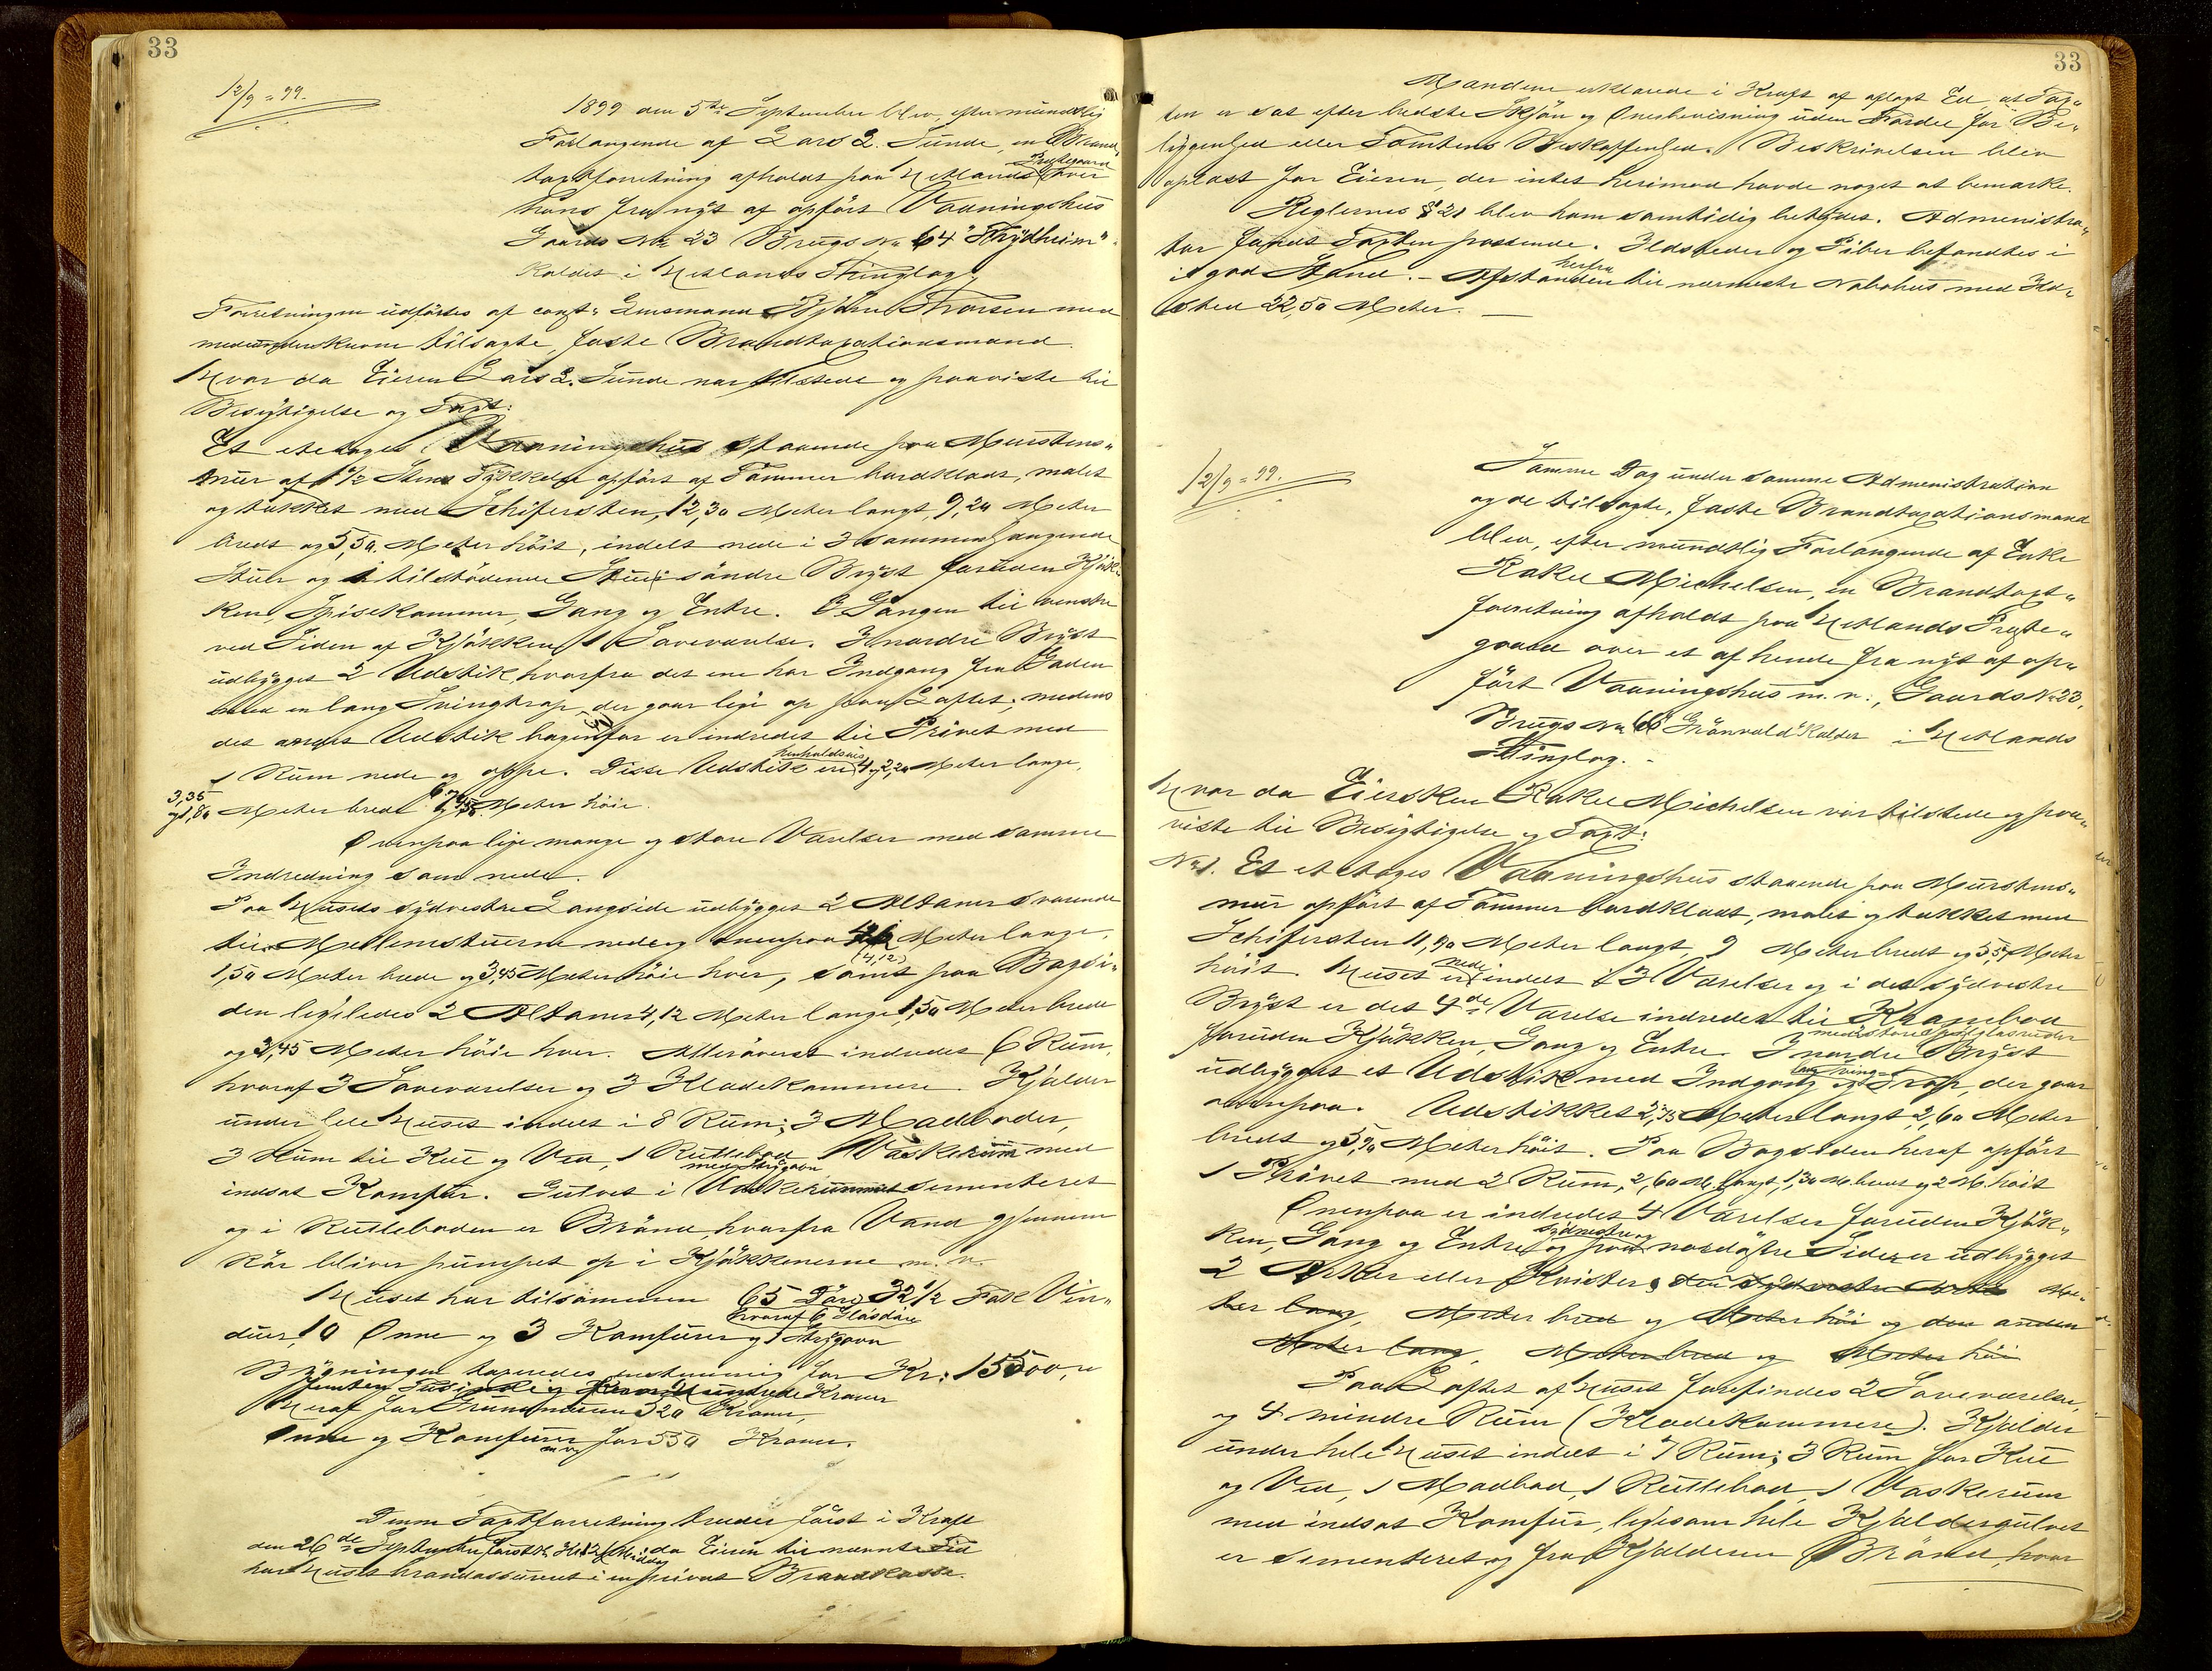 33
12/9 = 99.
1899 den 5te September blev, efter mundtlig
Forlangende af Lars L. Sunde, en Brand-
taxtforretning afholdt paa Hetlands Prestegaard over
hans fra nyt af opført Vaaningshus
Gaards No 23 Brugs No 64 "Frydheim"
kaldet i Hetlands Thinglag.
Forretningen udførtes af const: Lensmand Thorsen med
medunderskrevne tilsagte, faste Brandtaxationsmænd.
Hvor da Eieren Lars L. Sunde var tilstede og paaviste til
Besigtigelse og Taxt:
Et etages Vaaningshus staaende paa Murstens-
mur af 1 1/2 Stens Tykkelse opført af Tømmer bordklædt, malet
og tækket med Schifersten, 12,30 Meter langt, 9,20 Meter
bredt og 5,50 Meter høit, indelt nede i 3 sammenhængende
Stuer og 1 tilstødende Stue i søndre Bryst foruden Kjøk-
ken, Spisekammer, Gang og Entre. I Gangen til venstre
ved Siden af Kjøkken 1 Soveværelse. I nordre Bryst
udbygget 2 Udstik, hvorfra det ene har Indgang fra Gaden
med en lang Svingtrap, der gaar lige op paa Loftet, medens
det andet Udstik bagenfor er indredet til Privet med
1 Rum nede og oppe. Disse Udstik ere henholdsvis 4 og 2,20 Meter lange,
3,35 og 1,80 Meter brede og Meter høie.
Ovenpaa lige mange og store Værelser med samme
Indredning som nede.
Paa Husets sydvestre Langside udbygget 2 Altaner svarende
til Mellemstuerne nede og ovenpaa (4,12) Meter lange,
1,50 Meter brede og 3,45 Meter høie hver, samt paa Bagsi-
den ligeledes 2 Altaner 4,12 Meter lange 1,50 Meter brede
og 3,45 Meter høie hver. Alleröverst indredet 6 Rum,
hvoraf 3 Soveværelser og 3 Klædekammere. Kjælder
under hele Huset indelt i 8 Rum; 3 Madboder,
3 Rum til Kul og Ved, 1 Rullebod 1 Vaskerum med
indsat Komfur med Strygovn. Gulvet i Vaskerummet sementeret
og i Rulleboden er Brønd, hvorfra Vand gjennem
Rør bliver pumpet op i Kjøkkenerne m. v.
Huset har tilsammen 65 Døre, hvoraf 6 Glasdøre 32 1/2 Fak Vin-
duer, 10 Ovne og 3 Komfurer og 1 Strygovn
Bygningen taxeredes enstemmig for Kr: 15500,00
femten Tusinde og fem Hundrede Kroner
Heraf for Grundmuren 520 Kroner,
Ovne og Komfurer m v for 550 Kroner.
Denne Taxtforretning træder først i Kraft
den 26de September førstk. Kl 12 Middag, da Eieren til nævnte Tid
har Huset brandassureret i en privat Brandkasse.
33
Mændene erklærede i Kraft af aflagt Ed, at Tax-
ten er sat efter bedste Skjøn og Overbevisning uden Fordel for Be-
liggenhed eller Tomtens Beskaffenhed. Beskrivelsen blev
oplæst for Eieren, der intet herimod havde noget at bemærke.
Reglernes § 21 blev ham samtidig betydet. Administra-
tor fandt Taxten passende. Ildsteder og Piber befandtes i
i god Stand. – Afstanden herfra til nærmeste Nabohus med Ild-
sted 22,50 Meter. –
12/9 = 99.
Samme Dag under samme Administration
og de tilsagte, faste Brandtaxationsmænd
blev, efter mundtlig Forlangende af Enke
Rakel Michelsen, en Brandtaxt-
forretning afholdt paa Hetlands Preste-
gaard over et af hende fra nyt af op-
ført Vaaningshus m. v., Gaards No 23,
Brugs No 66 "Grönvold" kaldet i Hetlands
Thinglag. –
Hvor da Eiersken Rakel Michelsen var tilstede og paa-
viste til Besigtigelse og Taxt:
No 1. Et et etages Vaaningshus staaende paa Murstens-
mur opført af Tømmer bordklædt, malet og tækket med
Schifersten 11,90 Meter langt, 9 Meter bredt og 5,5 Meter
høit. Huset er nede indelt i 3 Værelser og i det sydvestre
Bryst er det 4de Værelse indredet til Krambod med store Speilglasruder
foruden Kjøkken, Gang og Entre. I nordre Bryst
udbygget et Udstik med Indgang og lang Sving-Trap, der gaar
ovenpaa. Udstikket 2,75 Meter langt 2,60 Meter
bredt og 5,90 Meter høit. Paa Bagsiden heraf opført
1 Privet med 2 Rum, 2,60 M. langt, 1,30 M. bredt og 2 M. høit
Ovenpaa er indredet 4 Værelser foruden Kjøk-
ken, Gang og Entre, og paa sydvestre og nordøstre Sider er udbygget
2 Arker eller Kvister, den sydvestre Me-
ter lang, Meter bred og Meter høi og den anden
Meter lang, Meter bred og Meter høi
Paa Loftet af Huset forefindes 2 Soveværelser,
og 4 mindre Rum (Klædekammere). Kjælder
under hele Huset indelt i 7 Rum; 3 Rum for Kul
og Ved, 1 Madbod, 1 Rullebod, 1 Vaskerum
med indsat Komfur, ligesom hele Kjældergulvet
er sementeret og fra Kjælderen Brønd, hvor